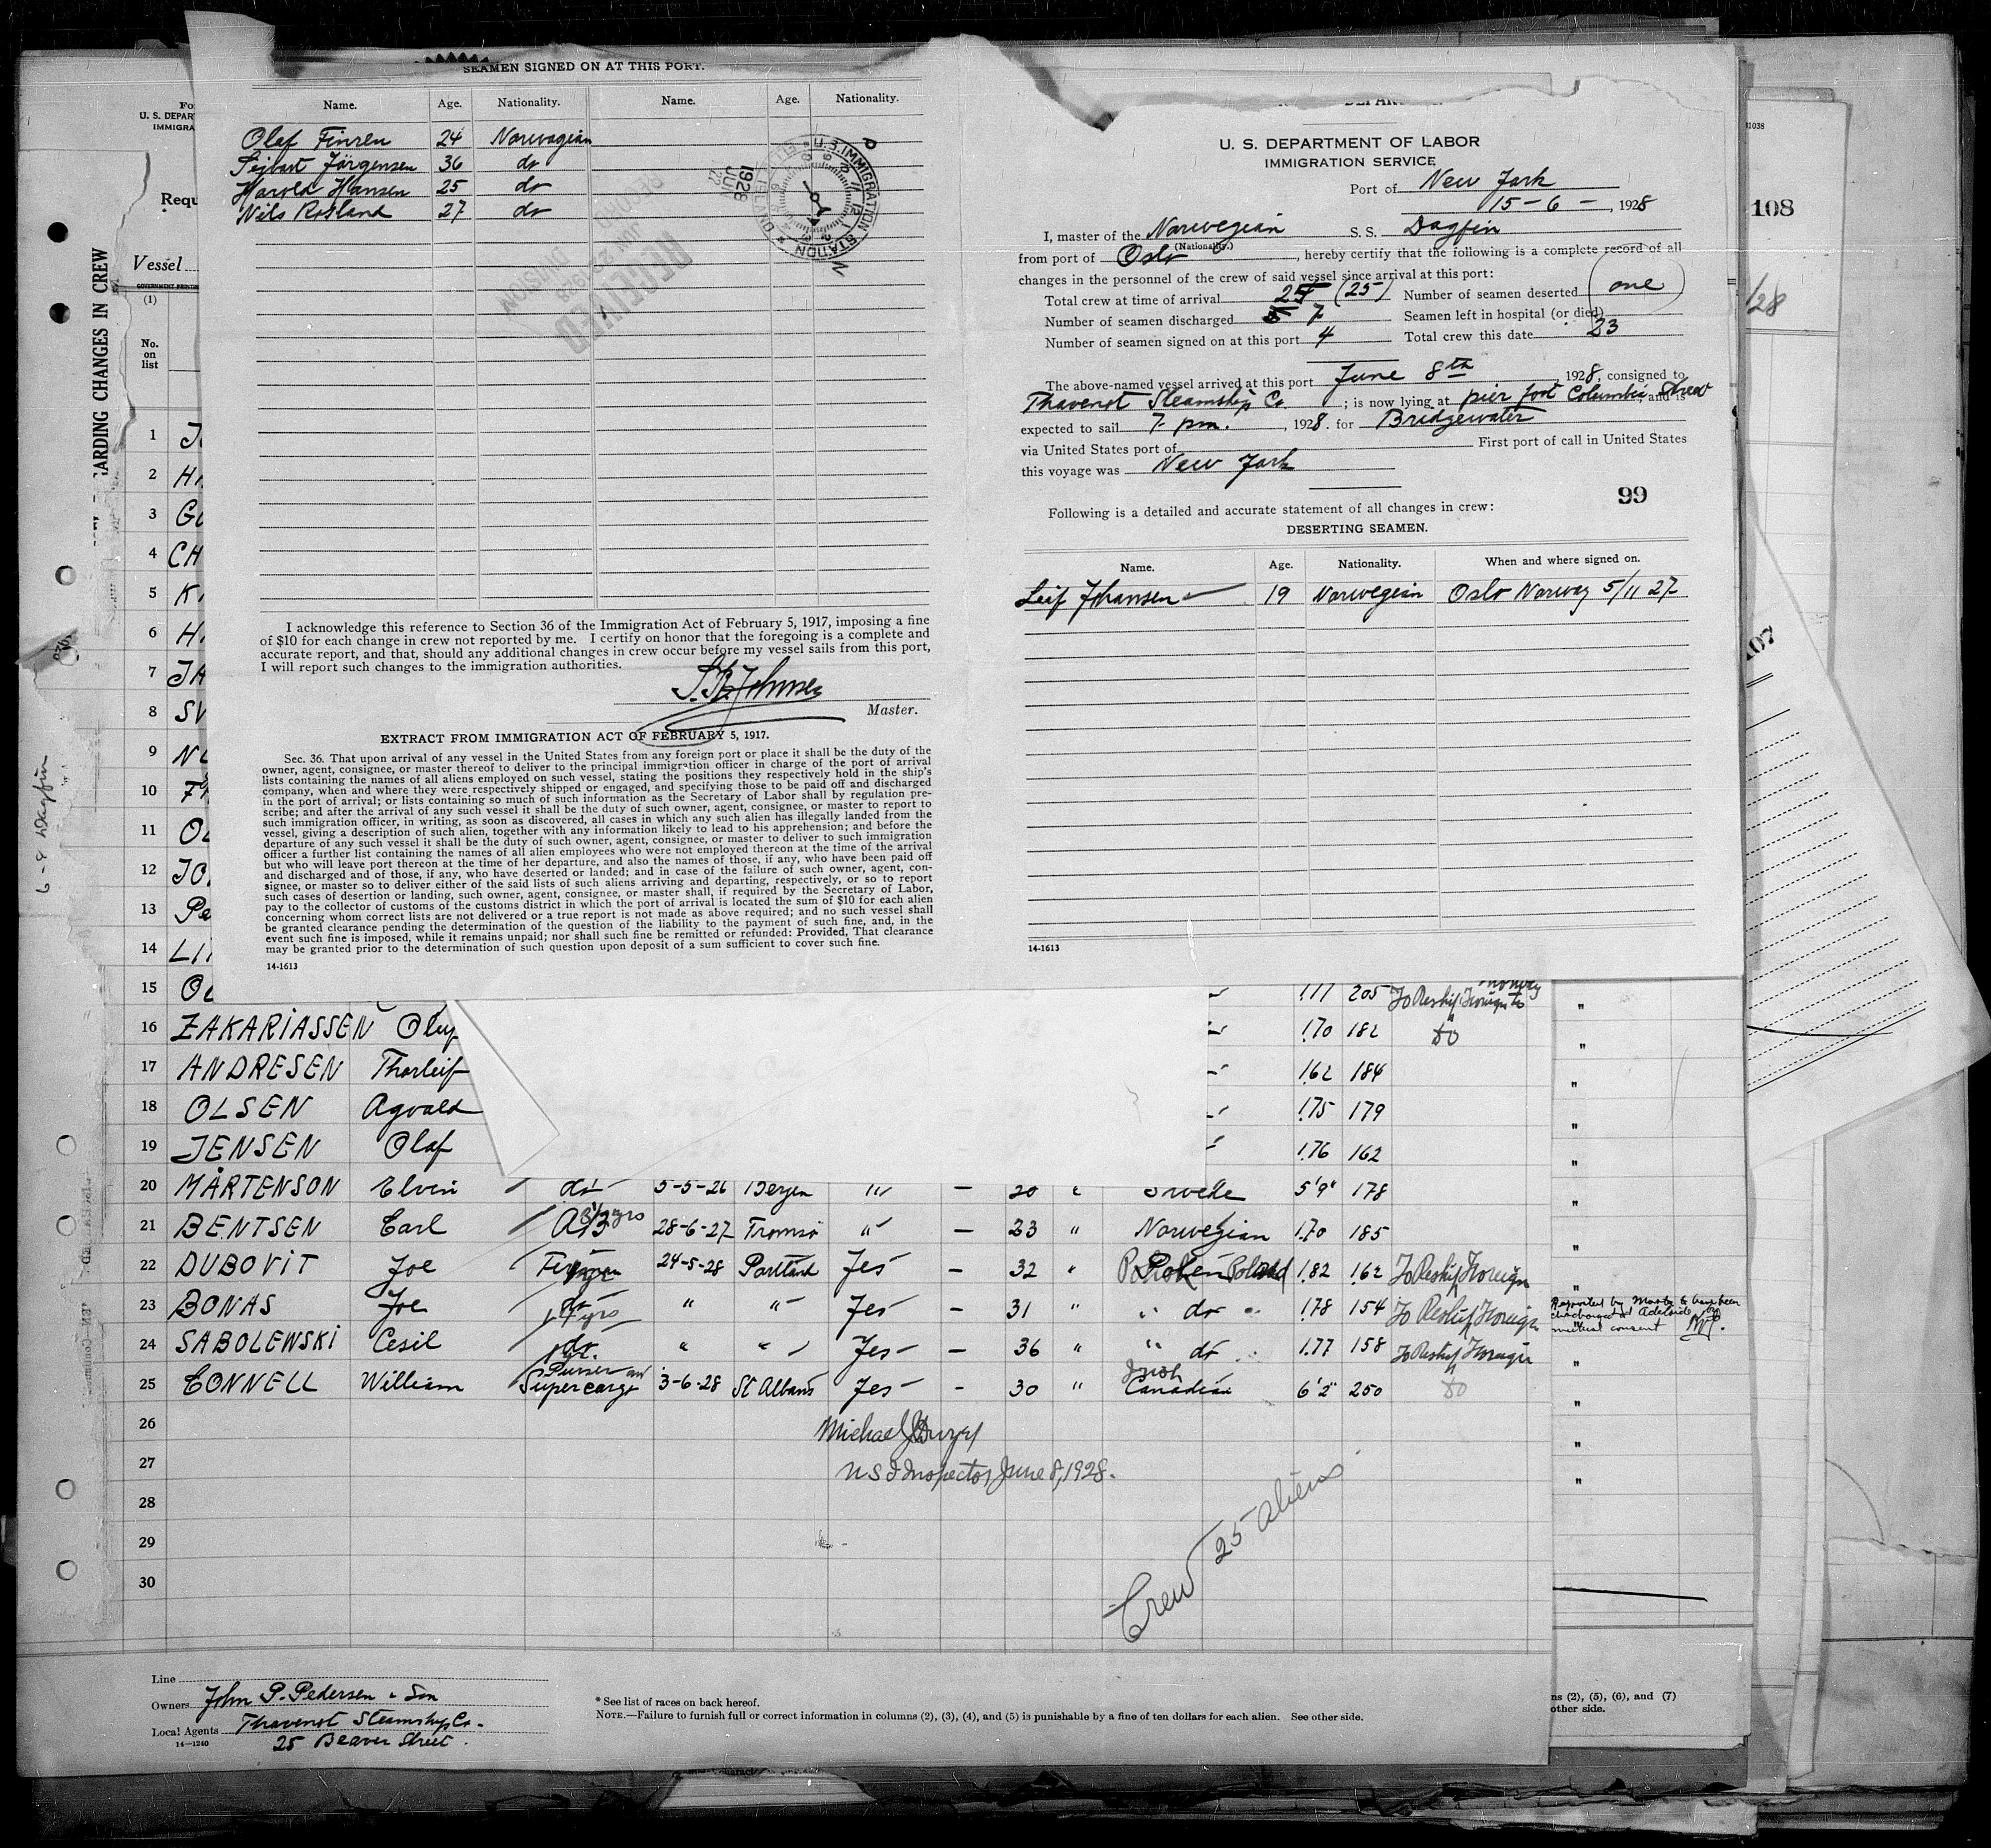 SEAMEN SIGNED ON AT THIS PORT.
Name. Age. Nationality. Name. Age. Nationality.
Olaf Finsen 24 Norwegian
Jörgensen 36 do
Harold Hansen 25 do
Nils Rosland 27 do
1928
U.S. IMMIGRATION STATION
RECEIVED
JUN 1928
RECORD DIVISION
I acknowledge this reference to Section 36 of the Immigration Act of February 5, 1917, imposing a fine
of $10 for each change in crew not reported by me. I certify on honor that the foregoing is a complete and
accurate report, and that, should any additional changes in crew occur before my vessel sails from this port,
I will report such changes to the immigration authorities.
Master.
EXTRACT FROM IMMIGRATION ACT OF FEBRUARY 5, 1917.
Sec. 36. That upon arrival of any vessel in the United States from any foreign port or place it shall be the duty of the
owner, agent, consignee, or master thereof to deliver to the principal immigration officer in charge of the port of arrival
lists containing the names of all aliens employed on such vessel, stating the positions they respectively hold in the ship's
company, when and where they were respectively shipped or engaged, and specifying those to be paid off and discharged
in the port of arrival; or lists containing so much of such information as the Secretary of Labor shall by regulation pre-
scribe; and after the arrival of any such vessel it shall be the duty of such owner, agent, consignee, or master to report to
such immigration officer, in writing, as soon as discovered, all cases in which any such alien has illegally landed from the
vessel, giving a description of such alien, together with any information likely to lead to his apprehension; and before the
departure of any such vessel it shall be the duty of such owner, agent, consignee, or master to deliver to such immigration
officer a further list containing the names of all alien employees who were not employed thereon at the time of the arrival
but who will leave port thereon at the time of her departure, and also the names of those, if any, who have been paid off
and discharged and of those, if any, who have deserted or landed; and in case of the failure of such owner, agent, con-
signee, or master so to deliver either of the said lists of such aliens arriving and departing, respectively, or so to report
such cases of desertion or landing, such owner, agent, consignee, or master shall, if required by the Secretary of Labor,
pay to the collector of customs of the customs district in which the port of arrival is located the sum of $10 for each alien
concerning whom correct lists are not delivered or a true report is not made as above required; and no such vessel shall
be granted clearance pending the determination of the question of the liability to the payment of such fine, and, in the
event such fine is imposed, while it remains unpaid; nor shall such fine be remitted or refunded: Provided, That clearance
may be granted prior to the determination of such question upon deposit of a sum sufficient to cover such fine.
14-1613
U. S. DEPARTMENT OF LABOR
IMMIGRATION SERVICE
Port of New York
15-6-, 1928
I, master of the Norwegian S. S. Dagfin
(Nationality.)
from port of Oslo, hereby certify that the following is a complete record of all
changes in the personnel of the crew of said vessel since arrival at this port:
Total crew at time of arrival 25 (25) Number of seamen deserted one
Number of seamen discharged 7 Seamen left in hospital (or died)
Number of seamen signed on at this port 4 Total crew this date 23
The above-named vessel arrived at this port June 8th, 1928, consigned to
Thavenot Steamship Co.; is now lying at pier foot Columbia Street, and is
expected to sail 7 pm., 1928. for Bridgewater
via United States port of First port of call in United States
this voyage was New York
99
Following is a detailed and accurate statement of all changes in crew:
DESERTING SEAMEN.
Name. Age. Nationality. When and where signed on.
Leif Johansen 19 Norwegian Oslo Norway 5/11 27
14-1613
U. S. DEPAR
IMMIGRA
Requ
Vessel
(1)
No.
on
list
ARDING CHANGES IN CREW
6-8 Dagfin
108
/28
107
1 J
2 H
3 G
4 CH
5 K
6 H
7 JA
8 SV
9 N
10 F
11 OL
12 JO
13 Pe
14 LI
15 OL 1.77 205 To Reship Foreign
16 ZAKARIASSEN Oluf 1.70 182 do "
17 ANDRESEN Thorleif 1.62 184 "
18 OLSEN Agvald 1.75 179 "
19 JENSEN Olaf 1.76 162 "
20 MÅRTENSON Elvin do 5-5-26 Bergen " - 20 " Swede 5'9" 178 "
21 BENTSEN Carl AB 28-6-27 Tromsö " - 23 " Norwegian 1.70 185 "
22 DUBOVIT Joe Fireman 24-5-28 Portland Yes - 32 " Poland 1.82 162 To Reship Foreign "
23 BONAS Joe do " " Yes - 31 " " do 1.78 154 To Reship Foreign
Reported by Master to have been
discharged at Adelaide by
mutual consent
24 SABOLEWSKI Cesil do. " " Yes - 36 " " do 1.77 158 To Reship Foreign "
25 CONNELL William Purser and Supercargo 3-6-28 St Albans Yes - 30 " Irish Canadian 6'2" 250 do "
26
27
28
29
30
Michael J
U S I Inspector June 8, 1928.
Crew 25 aliens
Line
Owners John P. Pedersen & Son
Local Agents Thavenot Steamship Co.
14-1240
25 Beaver Street.
* See list of races on back hereof.
NOTE.—Failure to furnish full or correct information in columns (2), (3), (4), and (5) is punishable by a fine of ten dollars for each alien. See other side.
ns (2), (5), (6), and (7)
other side.